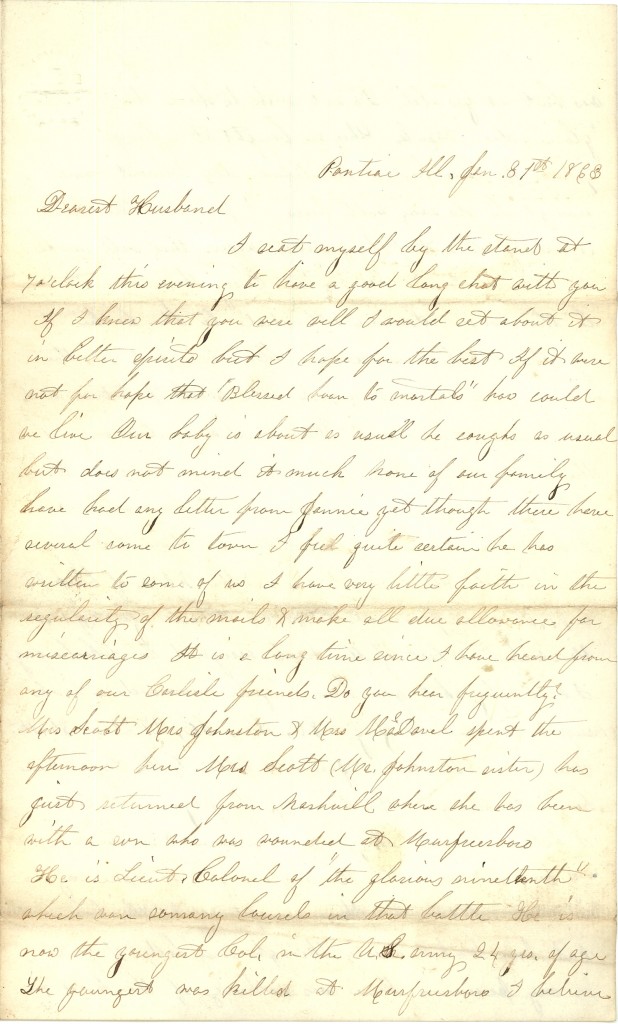 Pontiac Ill. Jan. 31st 1863
Dearest Husband
I seat myself by the stand at
7 o'clock this evening to have a good long chat with you
If I knew that you were well I would set about it
in better spirits but I hope for the best If it were
not for hope that "Blessed boon to mortals" how could
we live Our baby is about as usual he coughs as usual
but does not mind it much None of our family
have had any letter from Jannie yet though there have
several come to town I feel quite certain he has
written to some of us I have very little faith in the
regularity of the mails & make all due allowance for
miscarriages It is a long time since I have heard from
any of our Carlisle friends. Do you hear frequently?
Mrs Scott Mrs Johnston & Mrs McDavel spent the
afternoon here Mrs Scott (Mr. Johnston sister) has
just returned from Nashvill where she has been
with a son who was wounded at Murfreesboro
He is Lieut. Colonel of "the glorious nineteenth"
which won somany laurels in that battle He is
now the youngest Col. in the U.S. army 24 yrs. of age
The youngest was killed at Murfreesboro I believe